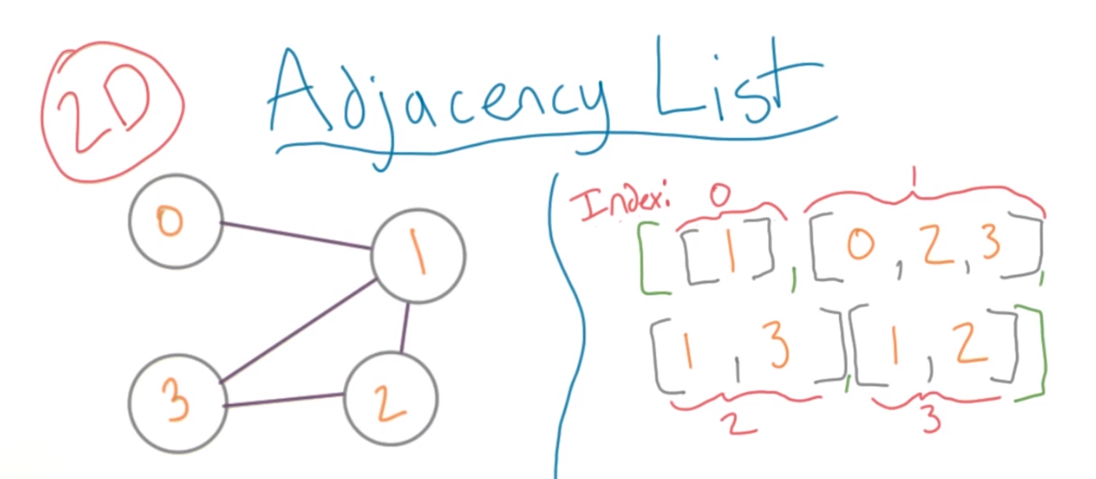 2D
Adjacency List
0
1
3
2
Index: 0 1
[ [1], [0, 2, 3],
[1, 3], [1, 2] ]
2 3